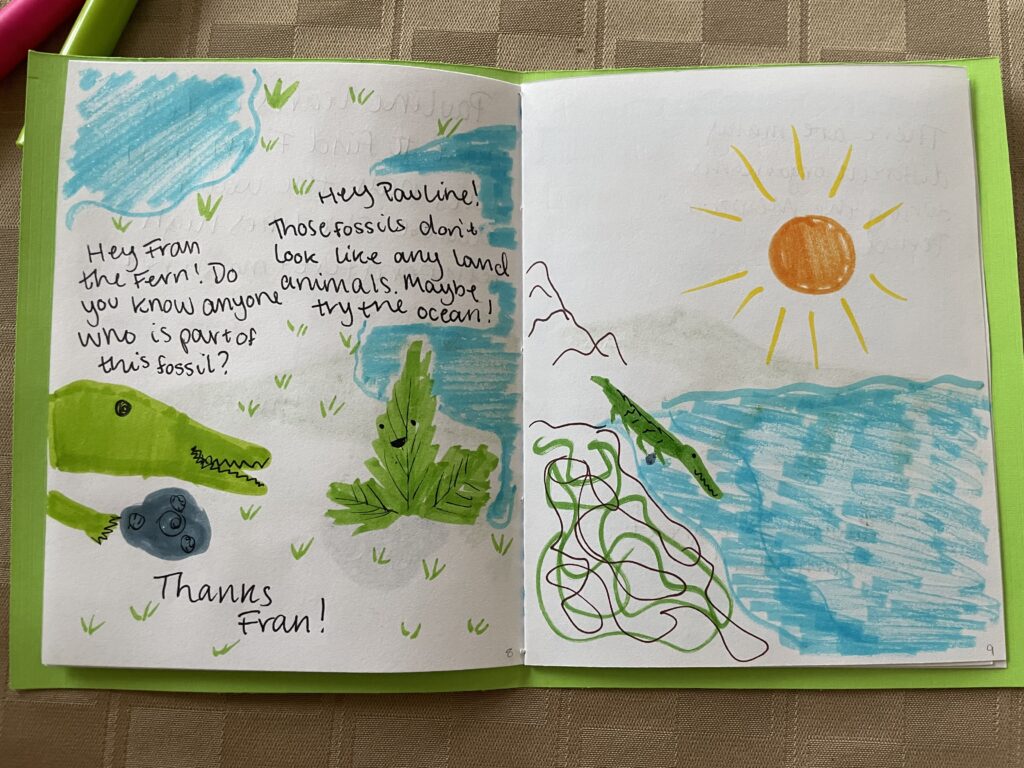 Hey Fran
the Fern! Do
you know anyone
who is part of
this fossil?
Hey Pauline!
Those fossils don't
look like any land
animals. Maybe
try the ocean!
Thanks
Fran!
8
9